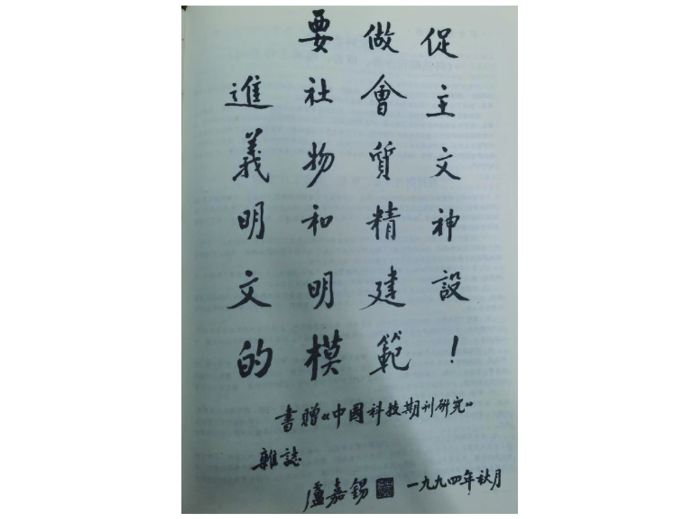 要做促
進社會主
義物質文
明和精神
文明建設
的模範！
書贈《中國科技期刊研究》
雜誌
盧嘉錫 一九九四年秋月